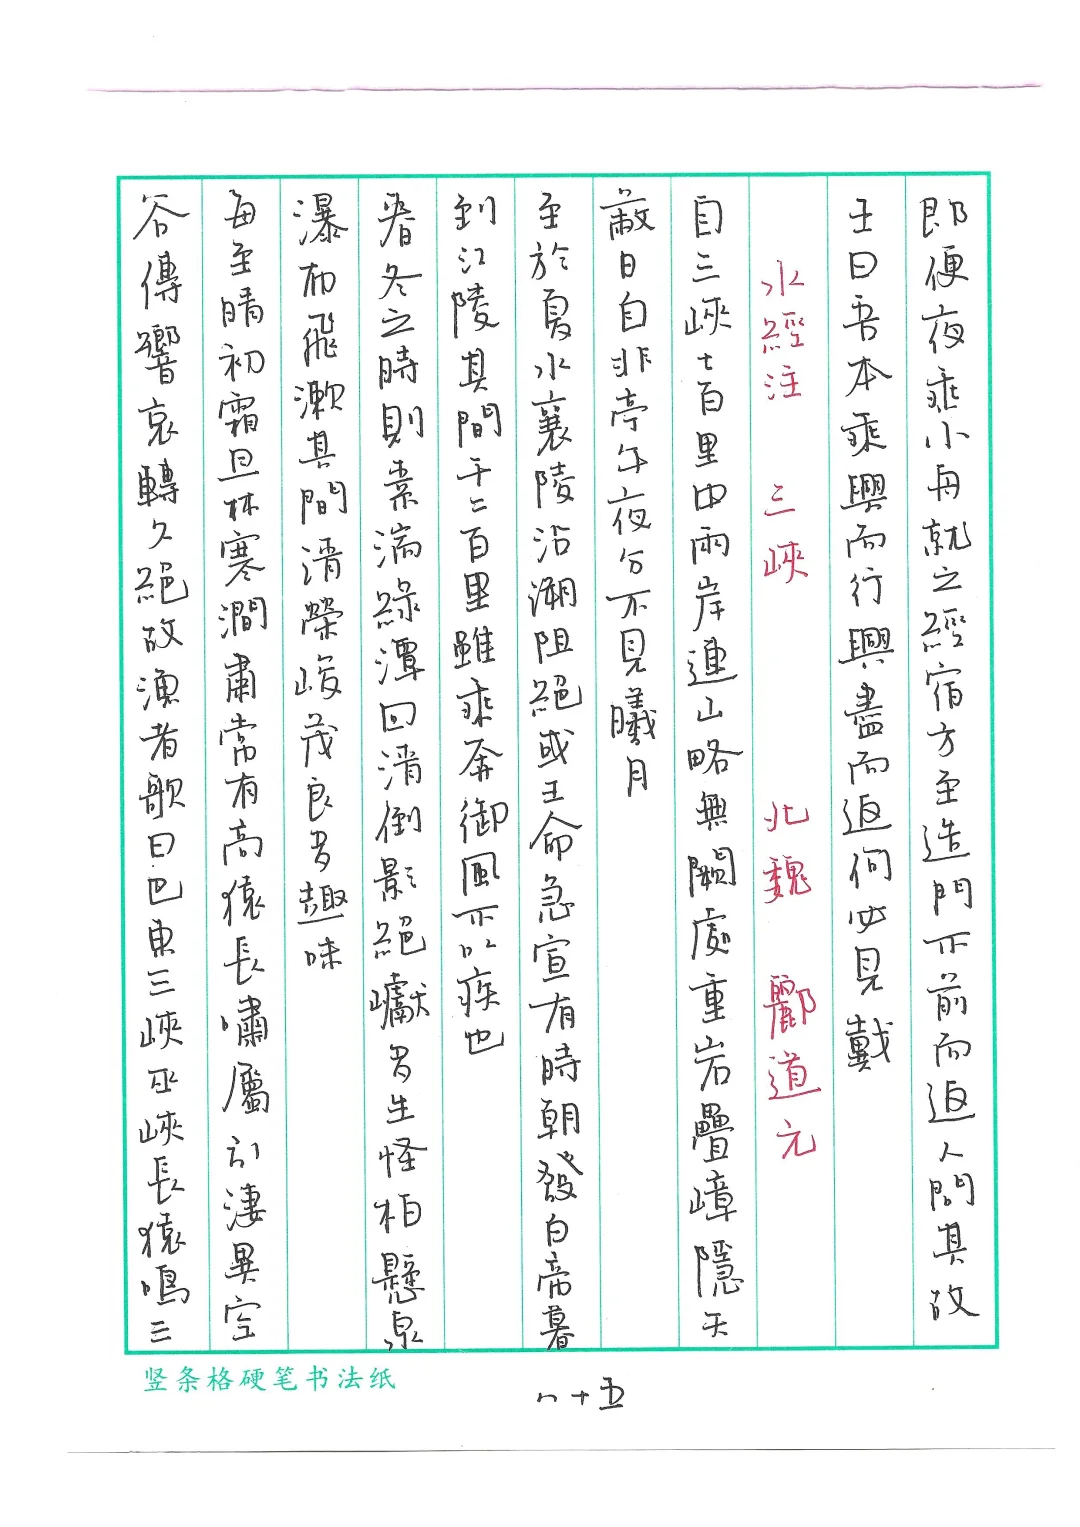 即便夜乘小舟就之經宿方至造門不前而返人問其故
王曰吾本乘興而行興盡而返何必見戴
水經注 三峽 北魏 酈道元
自三峽七百里中兩岸連山略無闕處重岩疊嶂隱天
蔽日自非亭午夜分不見曦月
至於夏水襄陵沿溯阻絕或王命急宣有時朝發白帝暮
到江陵其間千二百里雖乘奔御風不以疾也
春冬之時則素湍綠潭回清倒影絕巘多生怪柏懸泉
瀑布飛漱其間清榮峻茂良多趣味
每至晴初霜旦林寒澗肅常有高猿長嘯屬引淒異空
谷傳響哀轉久絕故漁者歌曰巴東三峽巫峽長猿鳴三
竖条格硬笔书法纸
八十五